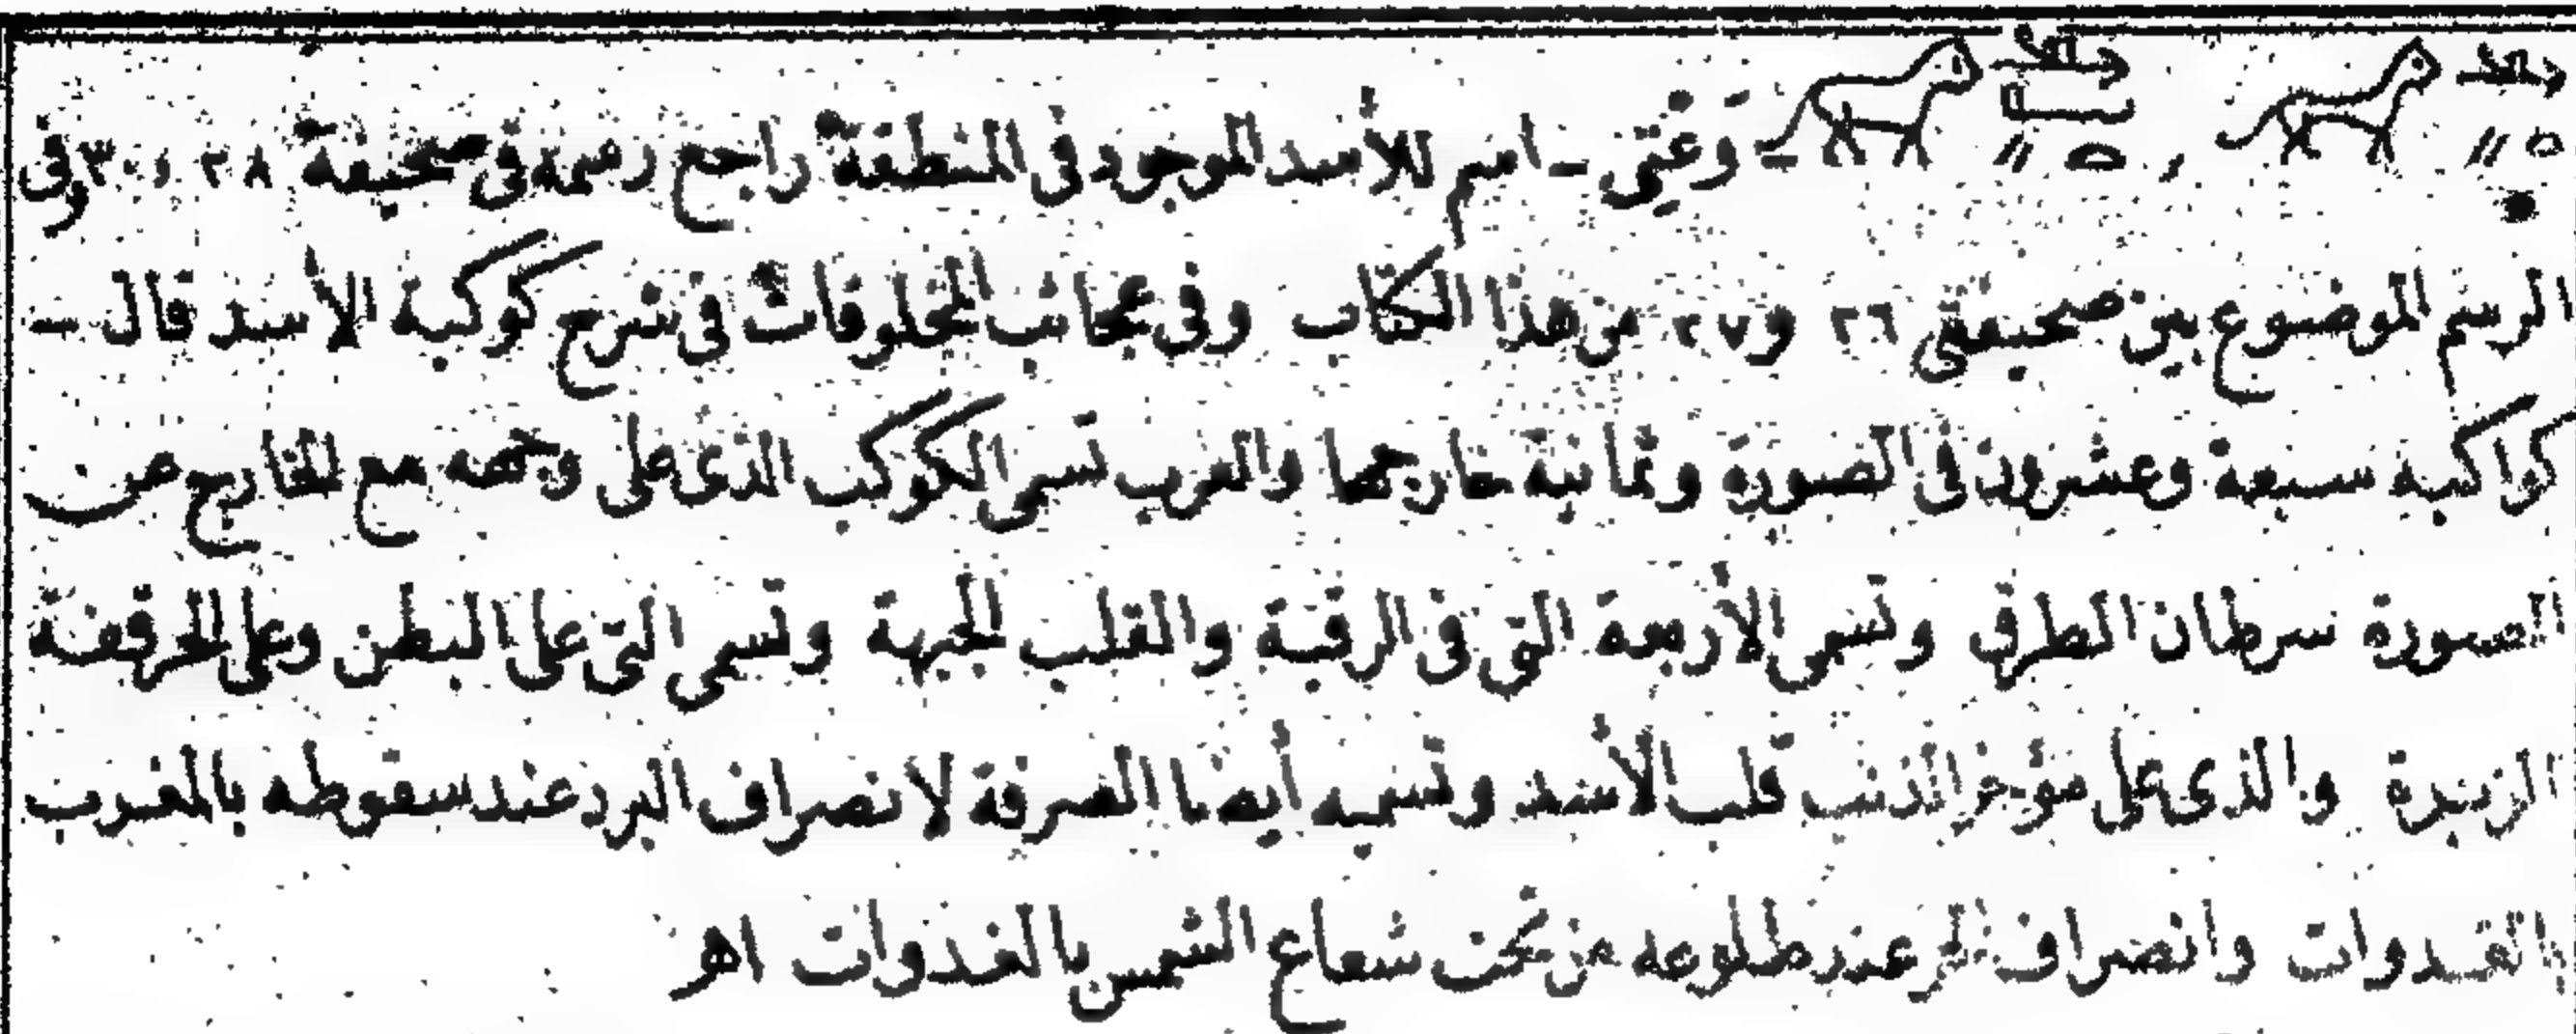 وعتى - اسم للأسد الموجود فى المنطقة راجع رسمه فى صحيفة ٢٨ و ٣٠ وفى
الرسم الموضوع بين صحيفتى ٢٦ و ٢٧ من هذا الكتاب وفى عجائب المخلوقات فى شرح كوكبة الأسد قال -
كواكبه سبعة وعشرون فى الصورة وثمانية خارجها والعرب تسمى الكوكب الذى على وجهه مع الخارج عن
الصورة سرطان الطرف وتسمى الأربعة التى فى الرقبة والقلب الجبهة وتسمى التى على البطن وعلى الحرقفة
الزبرة والذى على مؤخر الذنب قلب الأسد وتسميه أيضا الصرفة لانصراف البرد عند سقوطه بالمغرب
بالغدوات وانصراف الحر عند طلوعه من تحت شعاع الشمس بالغدوات اهـ